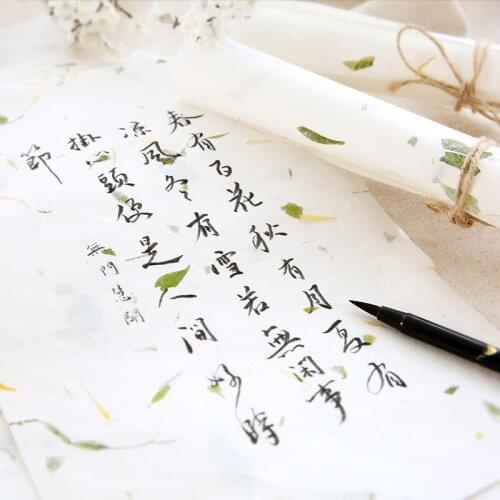 春有百花秋有月夏有
凉風冬有雪若無閑事
掛心頭便是人間好時
節
無門慧開